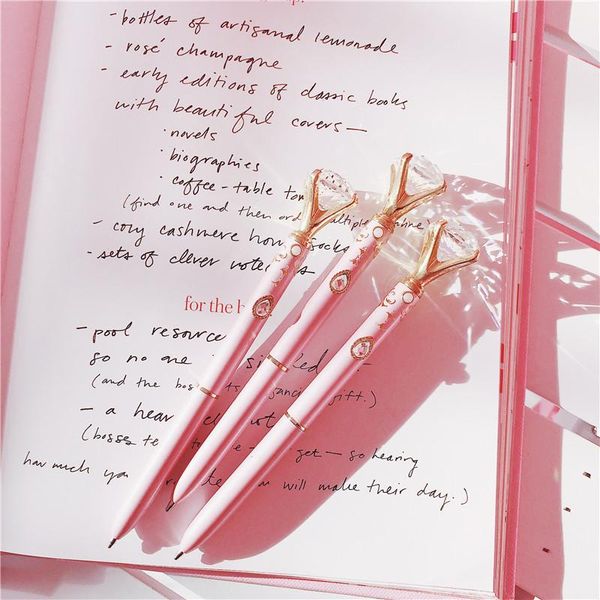 - bottles of artisanal lemonade
- rosé champagne
- early editions of classic books
with beautiful covers —
· novels
· biographies
· coffee-table
(find one and then multiple
- cozy cashmere socks
- sets of clever
for the
- pool resource
so no one is
(and the gift.)
- a
(bosses get — so hearing
how much you will make their day.)